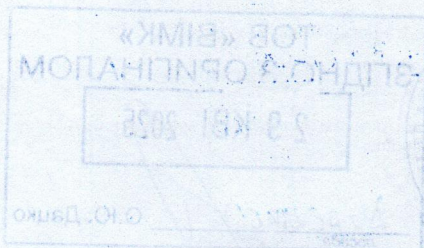 ТОВ «ВІМК»
ЗГІДНО З ОРИГІНАЛОМ
2025
О.Ю. Дацко